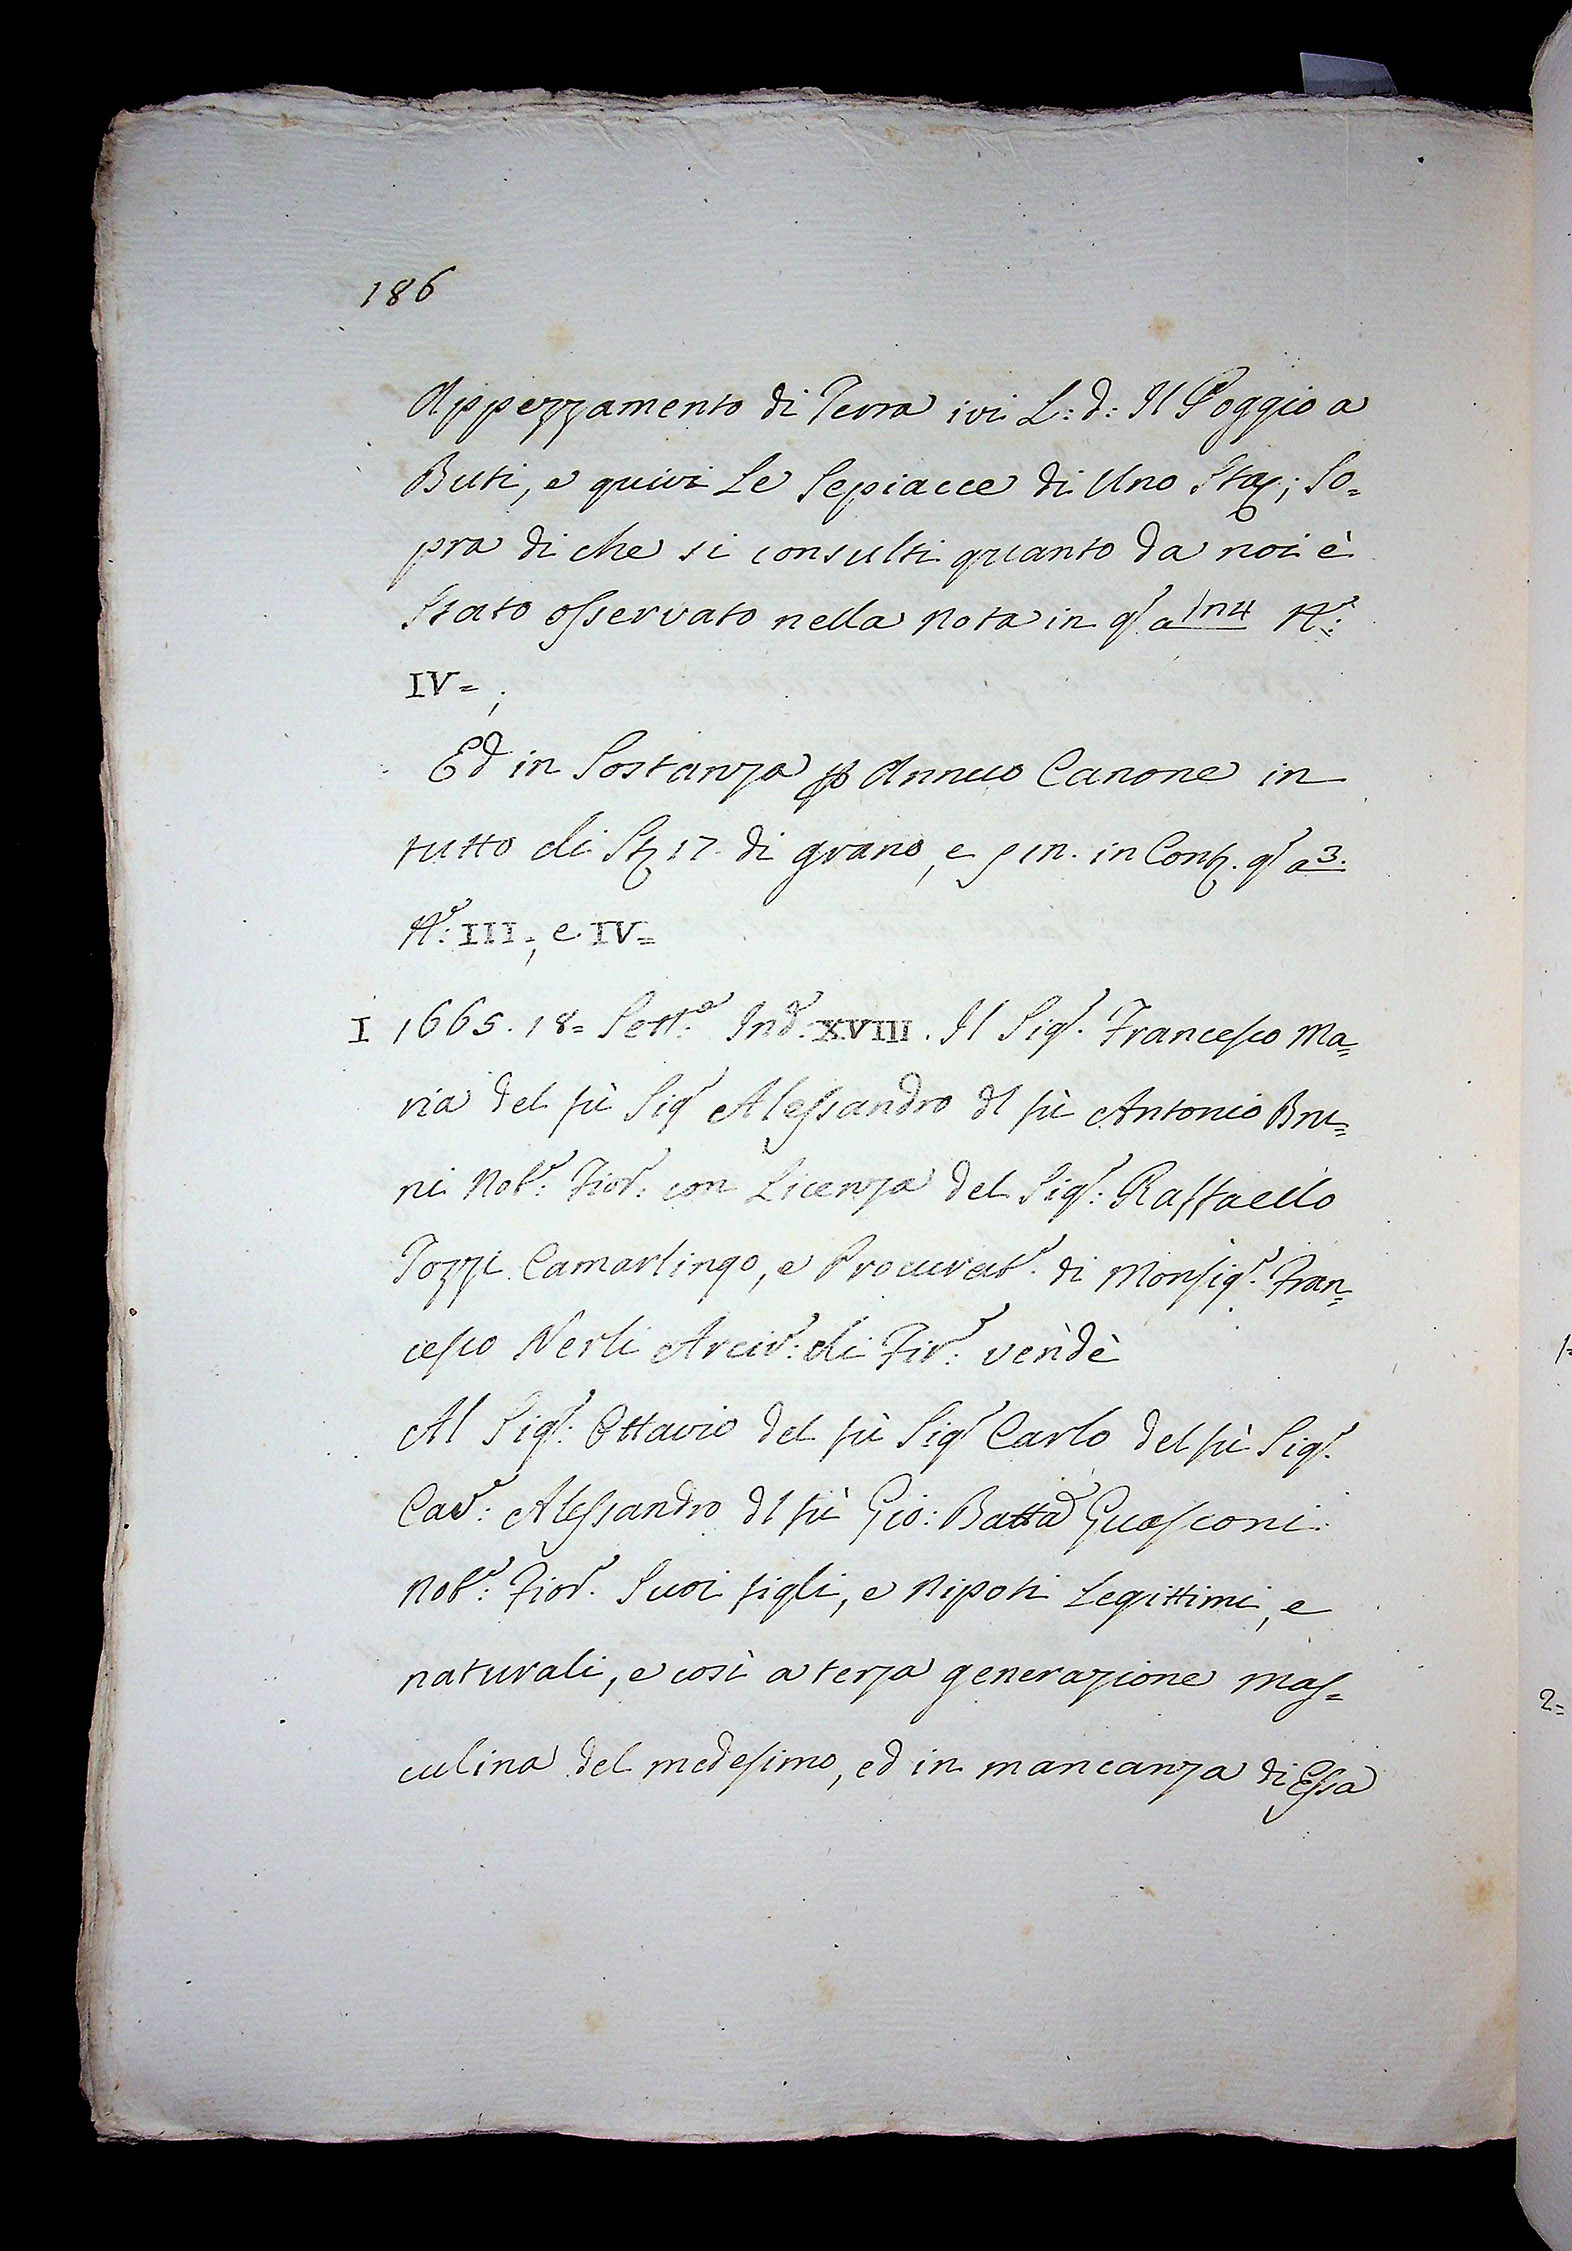 186
Appezzamento di Terra ivi L: d: Il Poggio a
Buti, e quivi Le Sepiacce di Uno Sta; So=
pra di che si consulti quanto da noi è
Stato osservato nella Nota in q.a N.o:
IV=;
Ed in Sostanza p Annuo Canone in
tutto di St 17. di grano, e in Cont. q.a 3.
N.o: III=, e IV=
I 1665. 18= Sett.e Ind. XVIII. Il Sig.r Francesco Ma=
ria del fù Sig.r Alessandro dl fù Antonio Bru=
ni Nob.e: Fior.: con Licenza del Sig.r: Raffaello
Tozzi Camarlingo, e Procurat.e di Monsig.r Fran=
cesco Nerli Arciv.: di Fir.e: vendè
Al Sig.r: Ottavio del fù Sig.r Carlo del fù Sig.r
Cav.e: Alessandro dl fù Gio: Batta Guasconi
Nob.e: Fior. Suoi figli, e Nipoti Legittimi, e
naturali, e così a terza generazione mas=
culina del medesimo, ed in mancanza di Essa
1=
2=